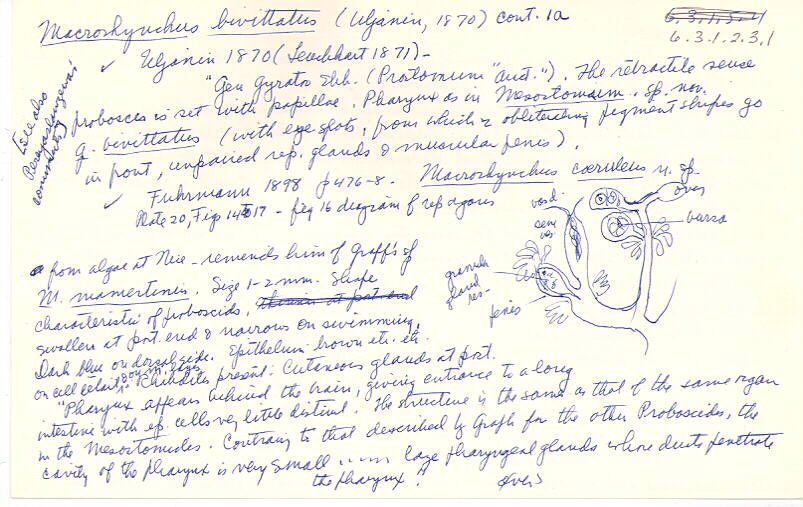 Macrorhynchus bivittatus (Uljanin, 1870) cont. 1a
6.3.1.5.4
6.3.1.2.3.1
✓ Uljanin 1870 (Leuckhart 1871) -
"Gen Gyrator Ehb. (Prostomum "aut."). The retractile sense
proboscis is set with papillae. Pharynx as in Mesostomum. sp. nov.
G. bivittatus (with eye spots, from which 2 obliterating pigment stripes go
in front, unpaired rep. glands & muscular penis).
[See also
comments]
✓ Fuhrmann 1898 p476-8. Macrorhynchus cœruleus n. sp.
Plate 20, Figs 14 to 17 - fig 16 diagram of rep organs
from algae at Nice - reminds him of Graff's sp
M. mamertinus. Size 1-2 mm. Shape
characteristic of proboscids,
swollen at post. end & narrows on swimming.
Dark blue on dorsal side. Epithelium brown etc. etc.
on cell detail. Rhabdites present. Cutaneous glands at post.
"Pharynx appears behind the brain, giving entrance to a long
intestine with ep. cells very little distinct. The structure is the same as that of the same organ
in the Mesostomides. Contrary to that described by Graff for the other Proboscides, the
cavity of the pharynx is very small ..... large pharyngeal glands whose ducts penetrate
the pharynx."
(over)
ovary
bursa
vas d.
sem
ves
granule
gland
res-
penis